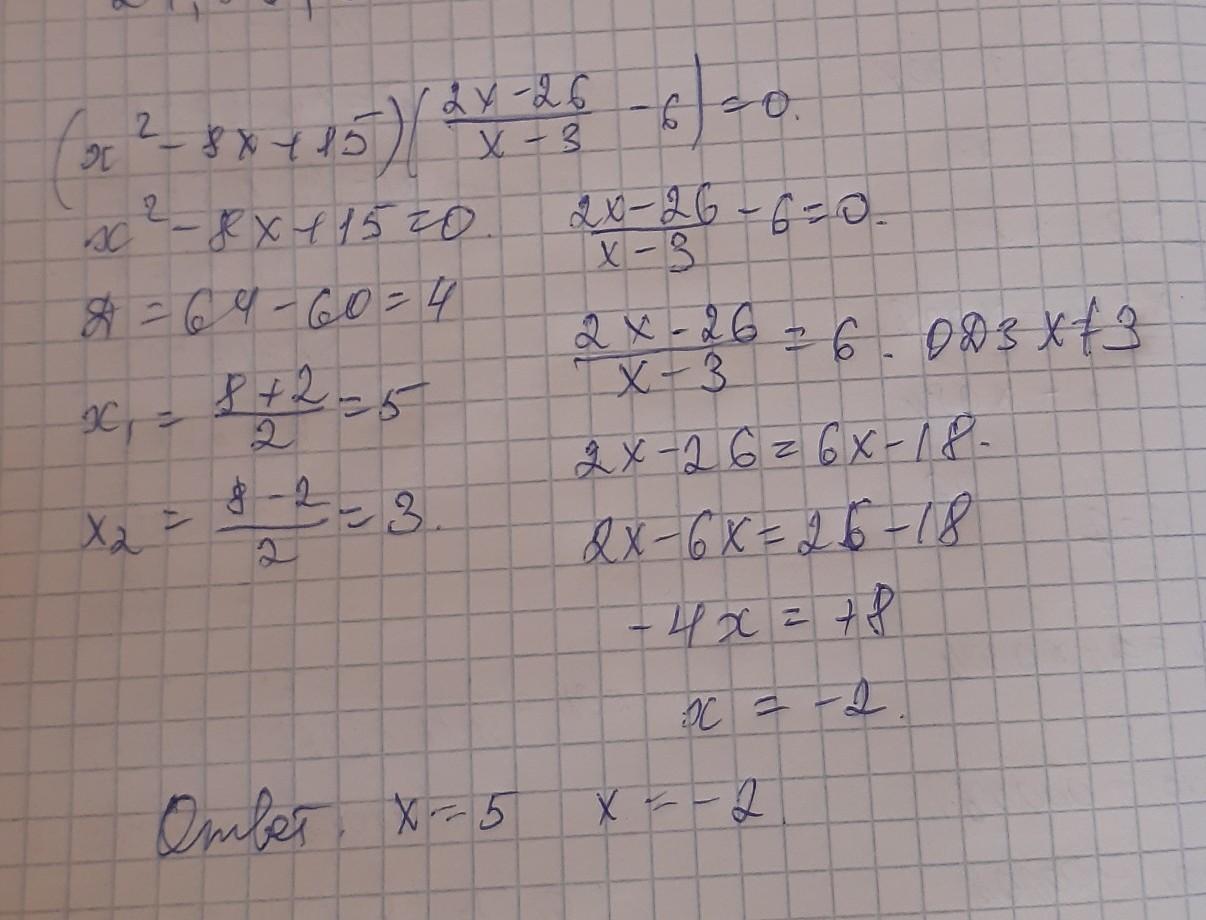 (x² - 8x + 15)((2x - 26)/(x - 3) - 6) = 0.
x² - 8x + 15 = 0. (2x - 26)/(x - 3) - 6 = 0.
Д = 64 - 60 = 4
(2x - 26)/(x - 3) = 6. ОДЗ x ≠ 3
x₁ = (8 + 2)/2 = 5
2x - 26 = 6x - 18.
x₂ = (8 - 2)/2 = 3.
2x - 6x = 26 - 18
-4x = +8
x = -2.
Ответ. x = 5 x = -2